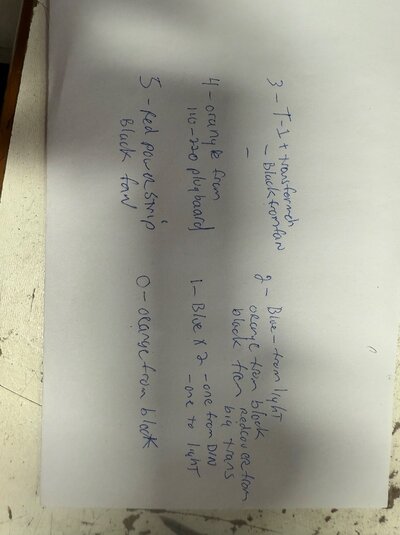 3 - T-1 + transformer
- Black from fan
-
2 - Blue - from light
orange from block
black from redcover from
big trans
4 - orange from
110-220 plugboard
1 - Blue x 2 - one from DIN
- one to light
5 - Red power strip
Black fan
0 - orange from block